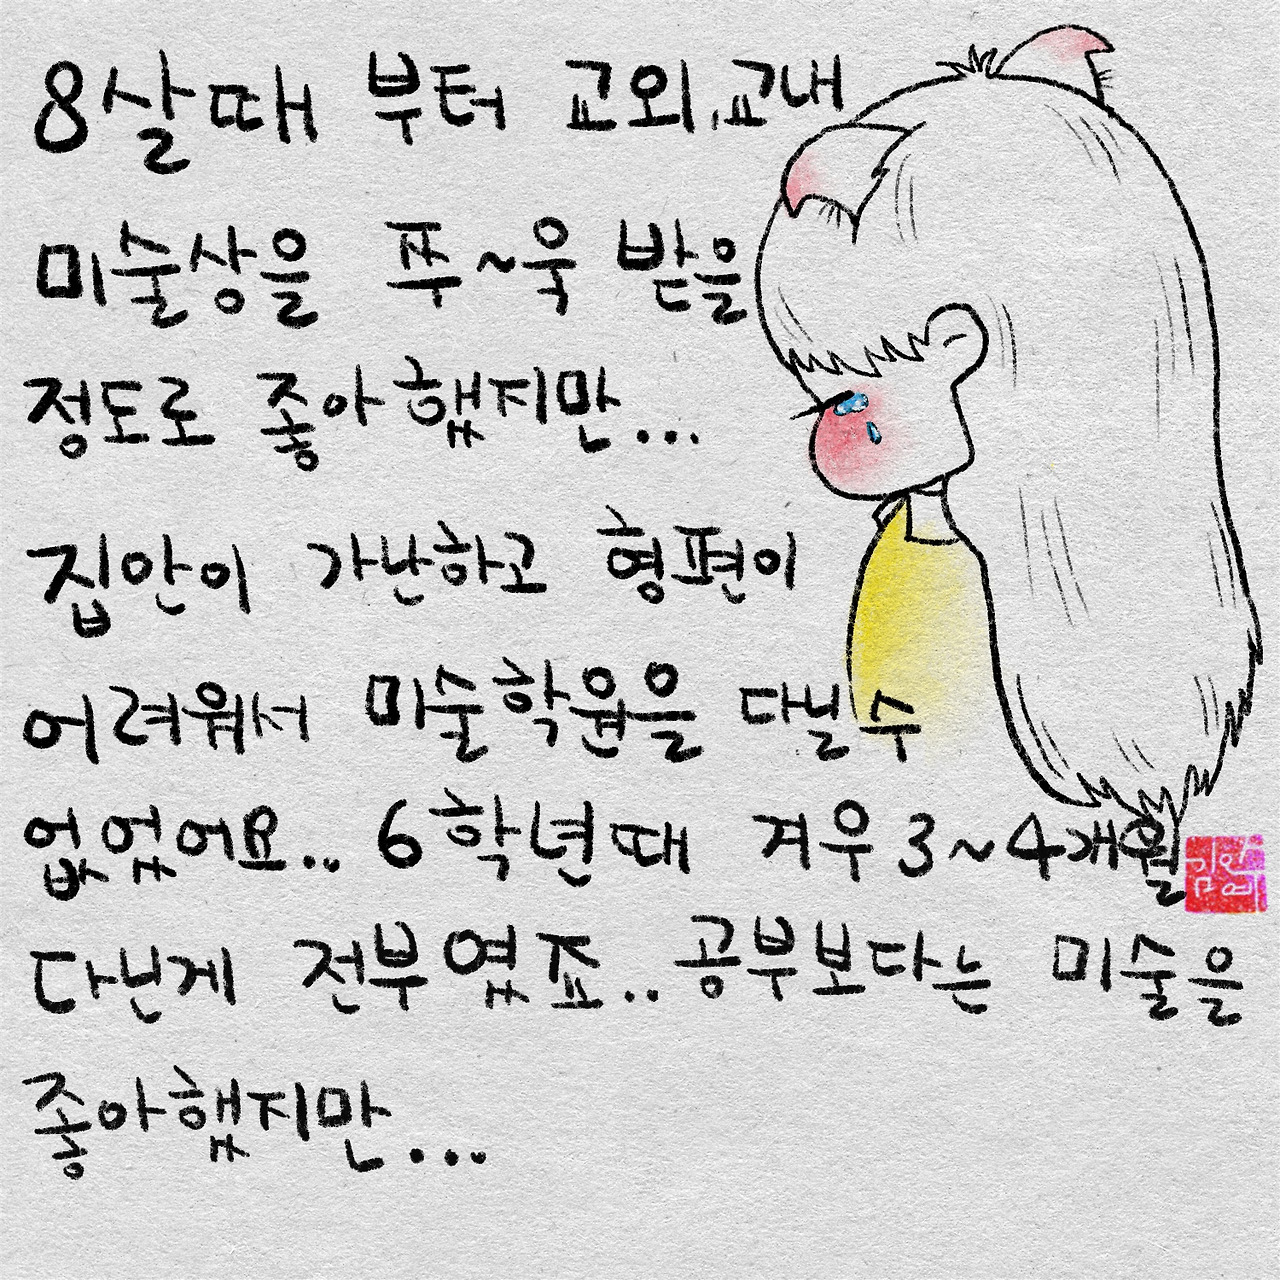 8살때 부터 교외,교내
미술상을 쭈~욱 받을
정도로 좋아했지만...
집안이 가난하고 형편이
어려워서 미술학원을 다닐수
없었어요.. 6학년때 겨우 3~4개월
다닌게 전부였죠.. 공부보다는 미술을
좋아했지만...